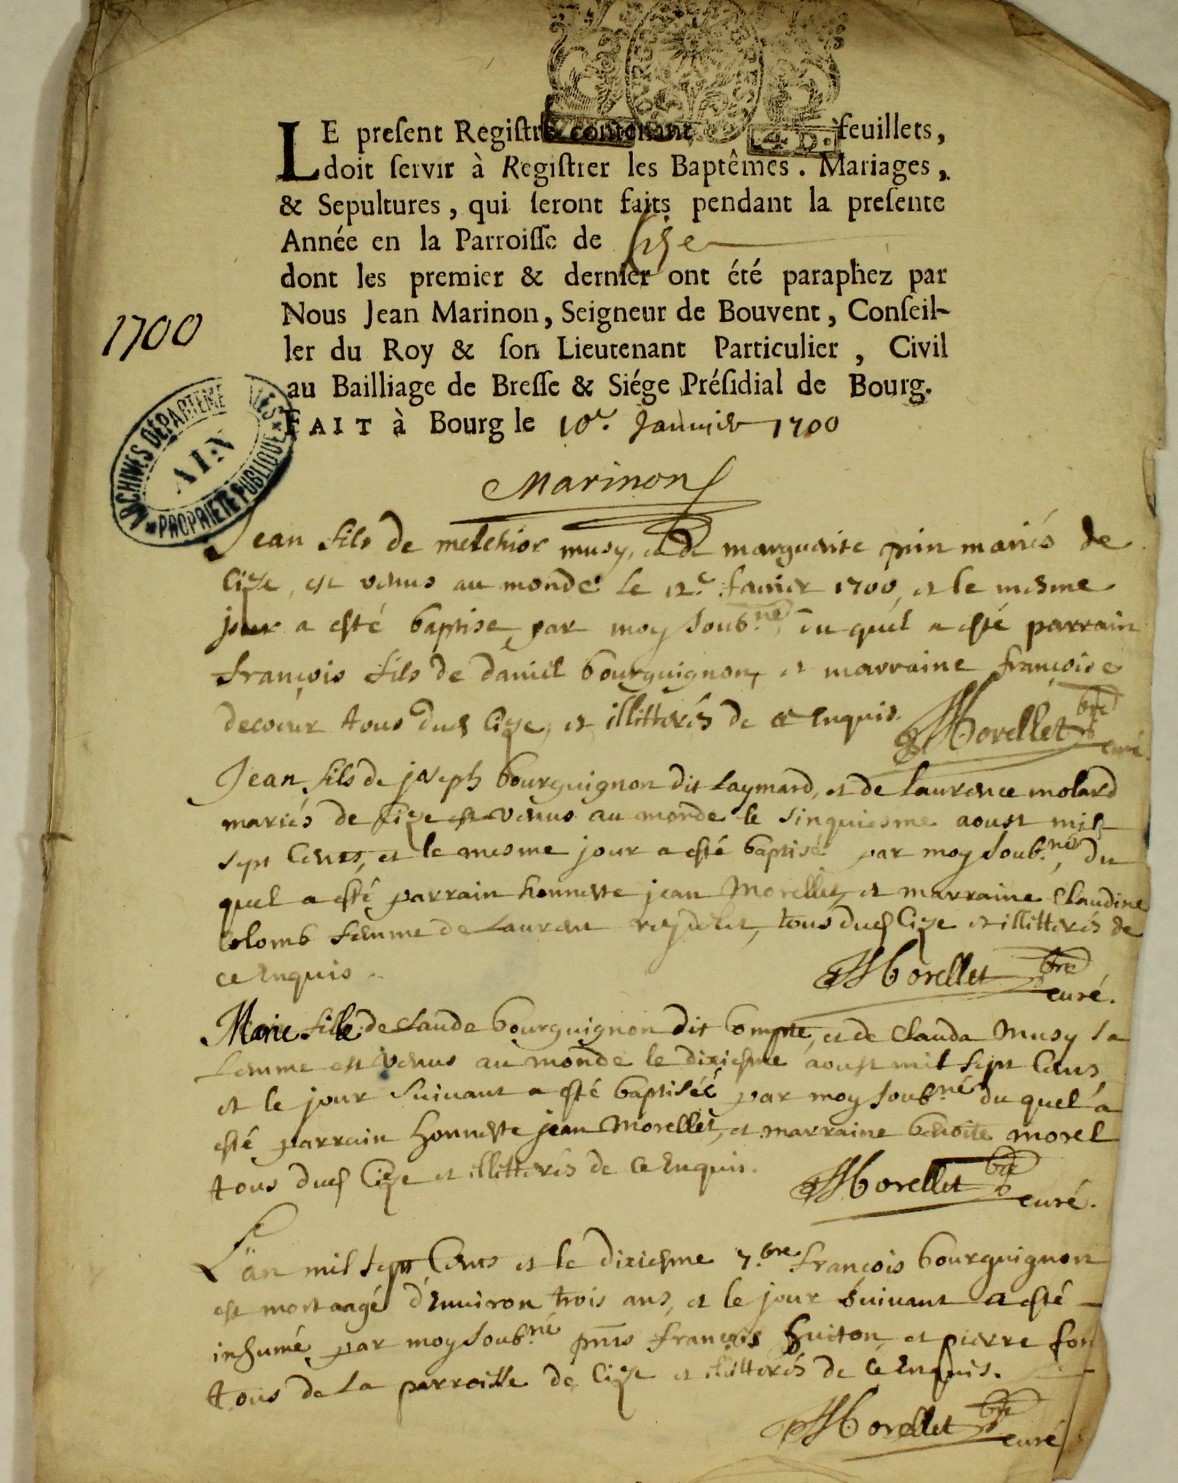 LE present Registre contenant feuillets,
doit servir à Registrer les Baptêmes. Mariages,
& Sepultures, qui seront faits pendant la presente
Année en la Parroisse de Size
dont les premier & dernier ont été paraphez par
Nous Jean Marinon, Seigneur de Bouvent, Conseil-
ler du Roy & son Lieutenant Particulier, Civil
au Bailliage de Bresse & Siége Présidial de Bourg.
FAIT à Bourg le 10e. Januier 1700
1700
ARCHIVES DÉPARTEMENTALES
AIN
PROPRIÉTÉ PUBLIQUE
Marinon
Jean fils de melchior musy, et de marguerite pin mariés de
Cize, est venus au monde le 12e. 1700, et le mesme
jour a esté baptise par moy soubné, du quel a esté parrain
françois fils de daniel bourguignon, et marraine françoise
decoeur tous dud Cize, et illitterés de ce Enquis.
Morellet bre
curé
Jean fils de joseph bourguignon dit Laymard, et de Laurence molard
mariés de Cize est venus au monde le sinquiesme aoust mil
sept Cents, et le mesme jour a esté baptisé par moy soubné, du
quel a esté parrain honneste jean Morellet, et marraine Claudine
Colomb femme de Laurent, tous dud Cize et illitterés de
ce Enquis.
Morellet bre
curé.
Marie fille de Claude bourguignon dit Compte, et de Clauda Musy sa
femme est venus au monde le dixiesme aoust mil sept Cens
et le jour suivant a esté baptiseé par moy soubné du quel a
esté parrain honneste jean Morellet, et marraine benoite morel
tous dud Cize et illitterés de ce Enquis.
Morellet bre
curé.
L'an mil sept Cens et le dixiesme 7.bre françois bourguignon
est mort aagé d'Environ trois ans, et le jour suivant a esté
inhumé par moy soubné pnts françois huiton, et pierre fon
tous de la parroisse de Cize et illitterés de ce Enquis.
Morellet bre
curé